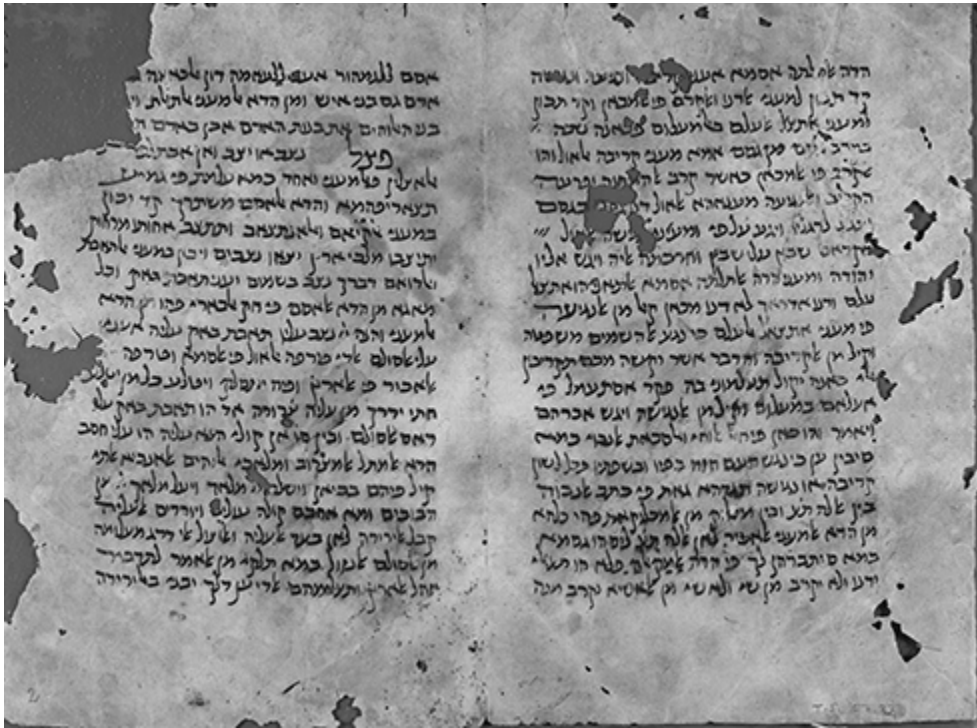 הדה אלתלתה אסמא אעני ונגישה
קד תכון למעני אלדנו ואלקרב פי אלמכאן וקד תכון
למעני אתצאל אלעלם באלמעלום פכאנה שבה
גסם מן גסם אמא מעני קריבה אלאול והו
אלקרב פי אלמכאן כאשר קרב אל המחנה ופרעה
הקריב ונגיעה מענאהא אלאול דנו גסם בגסם
ותגע לרגליו ויגע על פי ומעני נגישה אלאול
שכץ עלי שכץ וחרכתה אליה ויגש אליו
יהודה ואלמעני אלתלתה אסמא
עלם ודנו אדראך לא דנו מכאן קיל מן
פי מעני אתצאל אלעלם כי נגע אל השמים משפטה
וקיל מן קריבה והדבר אשר יקשה מכם תקריבון
אלי כאנה יקול תעלמוני בה פקד אסתעמל פי
אעלאם במעלום וקיל מן נגישה ויגש אברהם
ויאמר והו כאן פי
כי נגש העם הזה בפיו ובשפתיו פכל לשון
קריבה או נגישה תגדהא גאת פי כתב אלנבוה
בין אללה תע׳ ובין מכלוק מן פהי כלהא
מן הדא אלמעני לאן אללה תע׳ ליס הו גסמא
כמא סיתברהן לך פי הדה אלמקאלה פלא הו תעאלי
ידנו ולא יקרב מן שי ולא שי מן אלאשיא יקרב מנה
אסם ללגמהור אעני ללעאמה דון אלכאצה
אדם גם בני איש ומן הדא אלמעני אלתאלת
בני האלוהים את בנות האדם אכן כאדם
פצל נצב או יצב ואן
אלאצלין פאלמעני ואחד כמא עלמת פי גמיע
תצאריפהמא והדא אלאסם משתרך קד יכון
במעני אלקיאם ואלאנתצאב ותתצב אחותו מרחוק
יתיצבו מלכי ארץ יצאו נצבים ויכון במעני אלתבות
ואלדואם דברך נצב בשמים יעני תאבת באק וכל
מא גא מן הדא אלאסם פי חק אלבארי פהו מן הדא
אלמעני והנה יי נצב עליו תאבת באק עליה אעני
עלי אלסולם אלדי טרפה אלאול פי אלסמא וטרפה
אלאכיר פי אלארץ ופיה יתסלק ויטלע כל מן יטלע
חתי ידרך מן עליה צרורה אד הו תאבת באק עלי
ראס אלסולם ובין הו אן קולי הנא עליה הו עלי חסב
הדא אלמתל אלמצרוב ומלאכי אלהים אלאנביא אלדי
קיל פיהם בביאן וישלח מלאך ויעל מלאך יי
הבוכים ומא אחכם קולה עולים ויורדים
קבל ירידה לאן בעד ואלוצול אלי דרג מעלומה
מן אלסולם אלנזול במא תלקי מן אלאמר לתדביר
אהל אלארץ ותעלימהם אלדי ען דלך כני באלירידה